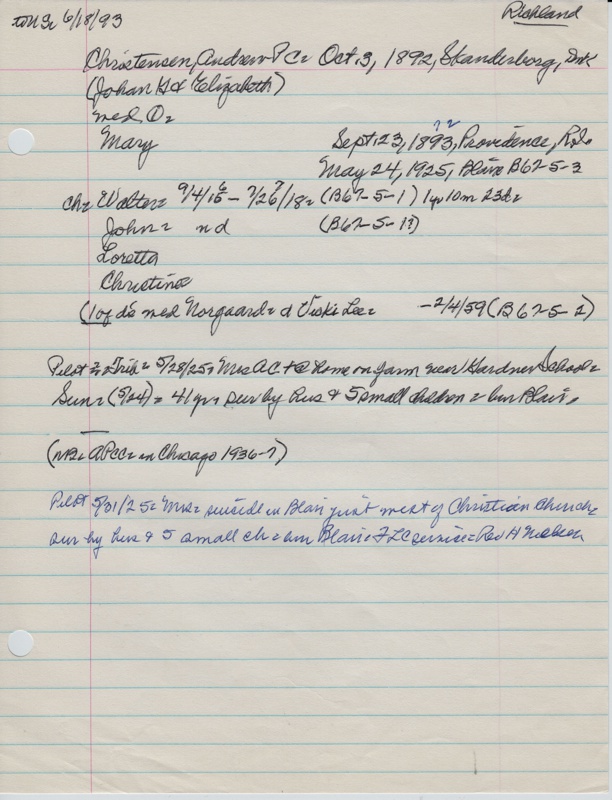 to NSc 6/18/93
Richland
Christensen, Andrew P C= Oct. 3, 1892, Skanderborg, Dmk
(Johan K & Elizabeth)
med O=
Mary Sept. 23, 1893, Providence, R.I.=
92
May 24, 1925, Blair B67-5-3
ch= Walter= 9/4/16 - 7/26/18= (B67-5-1) 1yr 10m 23d=
John= nd (B67-5-1?)
Loretta
Christine
(1 of d's med Norgaard= d Vicki Lee= -2/4/59 (B67-5-2)
Pilot = Trib= 5/28/25= Mrs AC + @ home on farm near Gardner School=
Sun= (5/24)= 41 yr= sur by hus & 5 small children = bur Blair.
(NB= APCC= in Chicago 1936-7)
Pilot 5/31/25= Mrs= suicide in Blair just west of Christian Church=
sur by hus & 5 small ch= bur Blair= FLC service= Rev H Nielsen